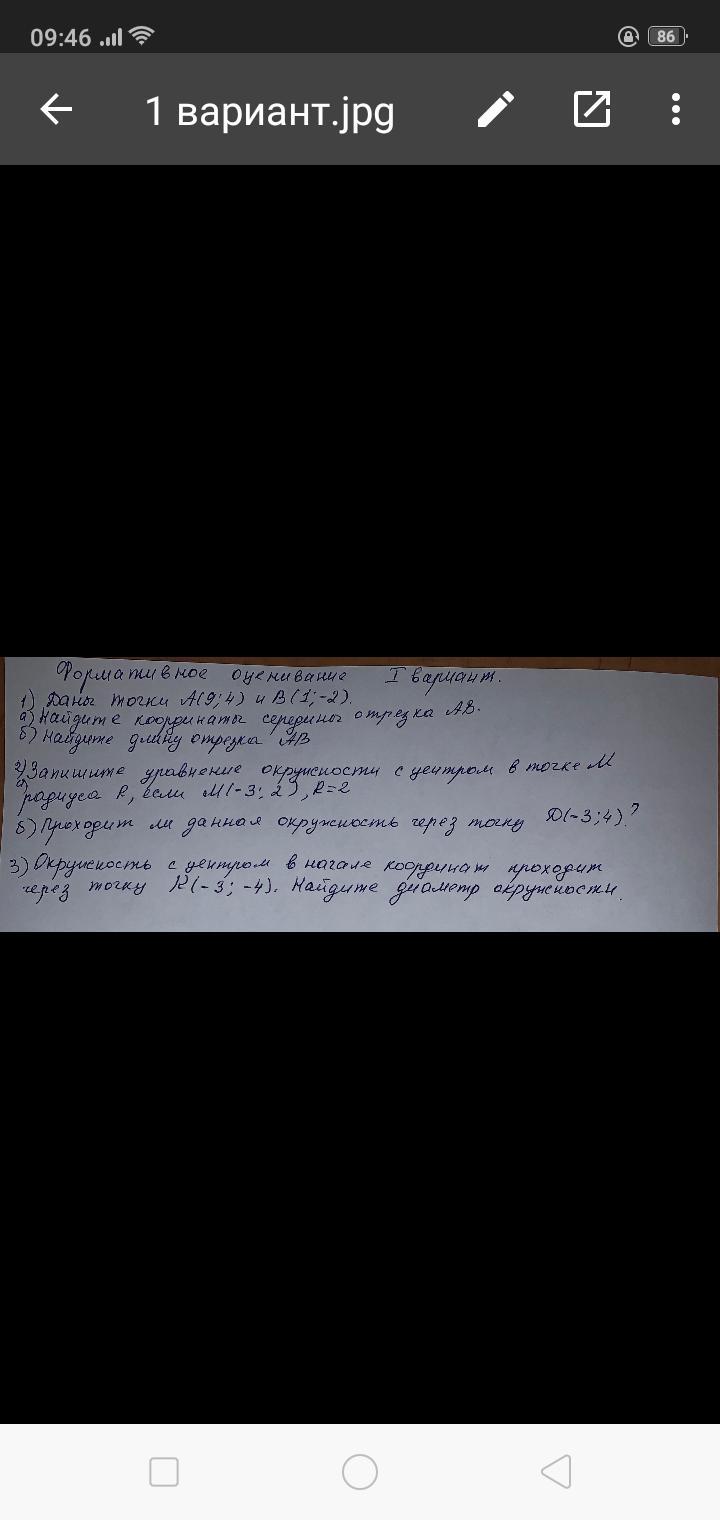 09:46
86
1 вариант.jpg
Формативное оценивание I вариант.
1) Даны точки A(9;4) и B(1;-2).
а) Найдите координаты середины отрезка AB.
б) Найдите длину отрезка AB
2) Запишите уравнение окружности с центром в точке M
а) радиуса R, если M(-3; 2), R=2
б) Проходит ли данная окружность через точку D(-3;4)?
3) Окружность с центром в начале координат проходит
через точку K(-3; -4). Найдите диаметр окружности.